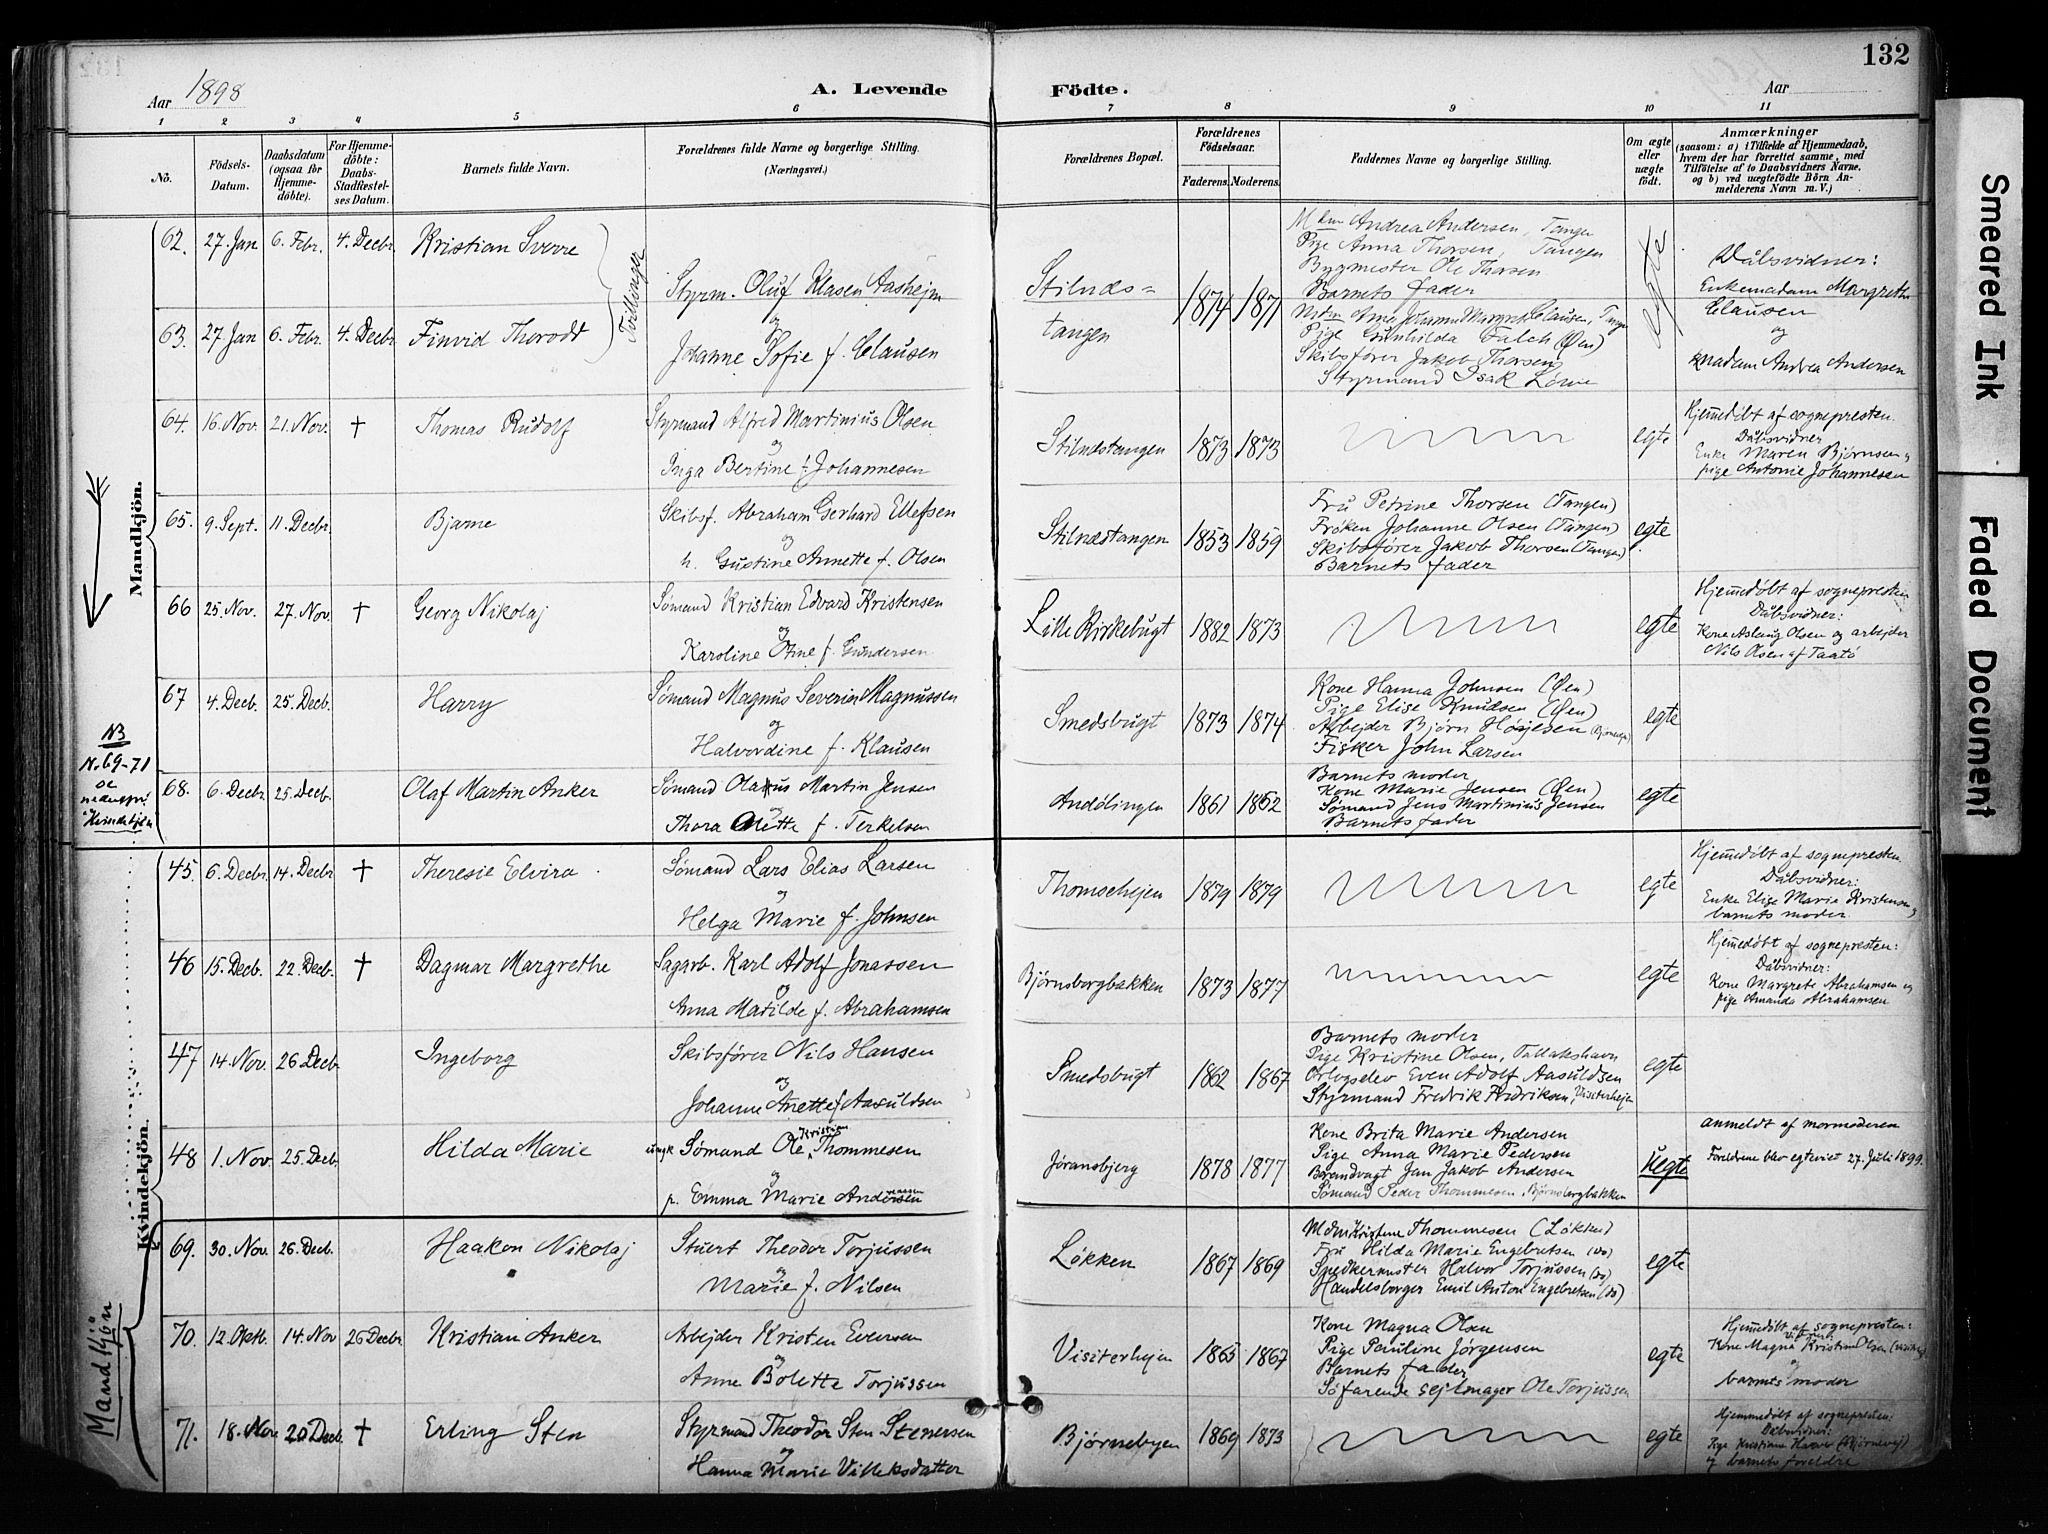 132
Aar 1898
A. Levende Födte.
Aar
1 2 3 4 5 6 7 8 9 10 11
No.
Födsels-Datum.
Daabsdatum (ogsaa for Hjemmedöbte).
For Hjemmedöbte: Daabs-Stadfæstelses Datum.
Barnets fulde Navn.
Forældrenes fulde Navne og borgerlige Stilling.
(Næringsvei.)
Forældrenes Bopæl.
Forældrenes Födselsaar.
Faderens. Moderens.
Faddernes Navne og borgerlige Stilling.
Om ægte eller uægte födt.
Anmærkninger
(saasom: a) i Tilfælde af Hjemmedaab, hvem der har forrettet samme, med Tilföielse af to Daabsvidners Navne, og b) ved uægtefödte Börn Anmelderens Navn m. V.)
Mandkjön.
62. 27. Jan 6. Febr. 4. Decbr. Kristian Sverre
63. 27. Jan 6. Febr. 4. Decbr. Finvid Thorodd
Tvillinger
Styrm. Oluf Klasen Aashejm
og
Johanne Sofie f. Clausen
Stilnæs=
tangen
1874 1871
Mdm Andrea Andersen, Tangen
Pige Anna Thorsen, Tangen
Bygmester Ole Thorsen
Barnets fader
Mdm Anne Johanne Margrete Clausen, Tangen
Pige Gunhilda Falch (Øen)
Skibsfører Jakob Thorsen
Styrmand Isak Løwe
egte
Dåbsvidner:
Enkemadam Margrethe
Clausen
og
madam Andrea Andersen
64. 16. Nov. 21. Nov. † Thomas Rudolf
Styrmand Alfred Martinius Olsen
og
Inga Bertine f. Johannesen
Stilnæstangen 1873 1873 egte
Hjemmedöbt af sognepresten.
Dåbsvidner
Enke Maren Bjørnsen og
pige Antonie Johannesen
65. 9. Sept. 11. Decbr. Bjarne
Skibsf. Abraham Gerhard Ellefsen
og
h. Gustine Annette f. Olsen
Stilnæstangen 1853 1859
Fru Petrine Thorsen (Tangen)
Frøken Johanne Olsen (Tangen)
Skibsfører Jakob Thorsen (Tangen)
Barnets fader
egte
66 25. Nov. 27. Nov. † Georg Nikolaj
Sømand Kristian Edvard Kristensen
og
Karoline Otine f. Gundersen
Lille Kirkebugt 1882 1873 egte
Hjemmedöbt af sognepresten
Dåbsvidner:
Kone Aslaug Olsen og arbejder
Nils Olsen af Taatö
67 4. Decb. 25. Decb. Harry
Sømand Magnus Severin Magnussen
og
Halvordine f. Klausen
Smedsbugt 1873 1874
Kone Hanna Johnsen (Øen)
Pige Elise Knudsen (Øen)
Arbejder Bjørn Høyesen
Fisker John Larsen
egte
NB
N. 69-71
se
nedenfor
"Kvindekjön"
68. 6. Decbr 25. Decb. Olaf Martin Anker
Sømand Olaus Martin Jensen
og
Thora Olette f. Terkelsen
Andölingen 1861 1852
Barnets moder
Kone Marie Jensen (Øen)
Sømand Jens Martinius Jensen
Barnets fader
egte
Kvindekjön.
45. 6. Decbr. 14. Decbr † Theresie Elvira
Sømand Lars Elias Larsen
og
Helga Marie f. Johnsen
Thomsehejen 1879 1879 egte
Hjemmedöbt af sognepresten
Dåbsvidner:
Enke Elise Maria Kristensen og
barnets moder.
46 15. Decb. 22. Decb. † Dagmar Margrethe
Sagarb. Karl Adolf Jonassen
og
Anna Matilde f. Abrahamsen
Bjørnsborgbakken 1873 1877 egte
Hjemmedöbt af sognepresten:
Dåbsvidner:
Kone Margrete Abrahamsen og
pige Amanda Abrahamsen
47 14. Nov. 26 Decb. Ingeborg
Skibsfører Nils Hansen
og
Johanne Anette f. Aasuldsen
Smedsbugt 1862 1867
Barnets moder
Pige Kristine Olsen, Tallakshavn
Orlogselev Even Adolf Aasuldsen
Styrmand Fredrik Fredriksen, Visiterhejen
egte
48 1. Nov. 25. Decb. Hilda Marie
ungk Sømand Ole Kristian Thommesen
og
p. Emma Marie Andersen
Jøransbjerg 1878 1877
Kone Brita Marie Andersen
Pige Anna Marie Pedersen
Brandvagt Jan Jakob Andersen
Sømand Peder Thommesen, Bjørnsborgbakken
uegte
anmeldt af mormoderen
Foreldrene blev egteviet 27. Juli 1899.
Mandkjön
69. 30. Nov. 26. Decb. Haakon Nikolaj
Stuert Theodor Torjussen
og
Marie f. Nilsen
Løkken 1867 1869
Mdm Kristine Thommesen (Løkken)
Fru Hilda Marie Engebretsen (do)
Snedkermester Halvor Torjussen (do)
Handelsborger Emil Anton Engebretsen (do)
egte
70. 12. Oktb. 14. Nov 26 Decbr. Kristian Anker
Arbejder Kristen Evensen
og
Anne Bolette Torjussen
Visiterhejen 1865 1867
Kone Magna Olsen
Pige Pauline Jörgensen
Barnets fader
Søfarende sejlmager Ole Torjussen
egte
Hjemmedöbt af sognepresten:
Vidner:
Kone Magna Kristian Olsen
og
barnets moder
71. 18. Nov. 20 Decb. † Erling Sten
Styrmand Theodor Sten Stenersen
og
Hanna Marie Villeksdatter
Bjørnebyen 1869 1873 egte
Hjemmedöbt af sognepresten:
Dåbsvidner:
og barnets foreldre
Smeared Ink
Faded Document